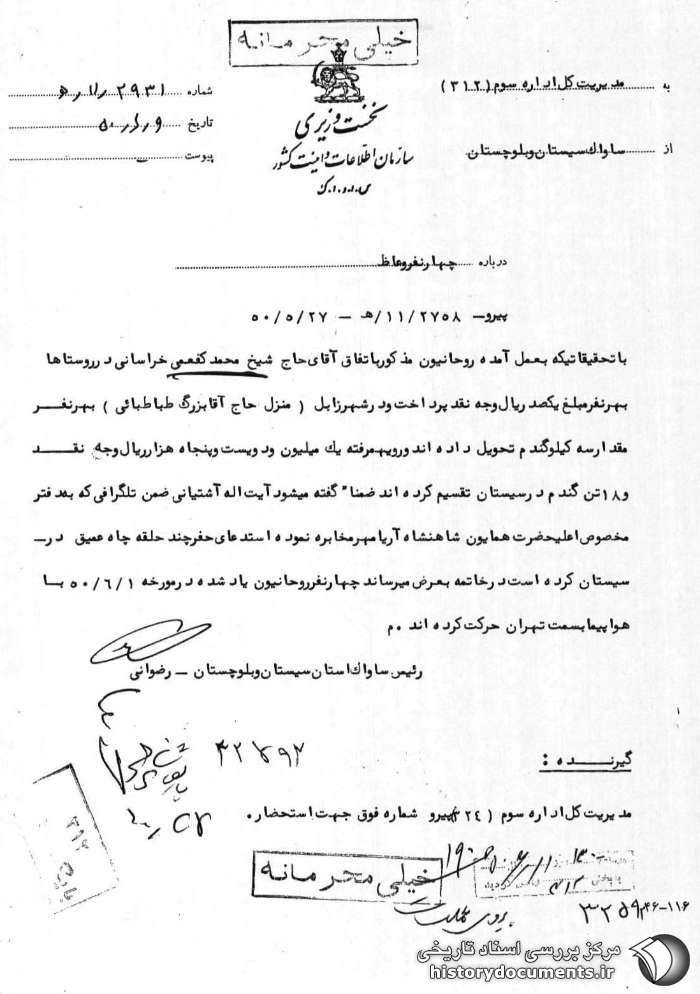 خیلی محرمانه
به مدیریت کل اداره سوم (۳۱۲)
از ساواك سیستان وبلوچستان
نخست وزیری
سازمان اطلاعات وامنیت کشور
س.ا.و.ا.ك
شماره ۲۹۳۱
تاریخ
پیوست
درباره چهارنفر وعاظ
پیرو– ۱۱/۲۷۵۸/ه‍ – ۵۰/۵/۲۷
با تحقیقاتیکه بعمل آمده روحانیون مذکور باتفاق آقای حاج شیخ محمد کفعمی خراسانی در روستاها
بهرنفر مبلغ یکصد ریال وجه نقد پرداخت ودر شهر زابل ( منزل حاج آقا بزرگ طباطبائی ) بهرنفر
مقدار سه کیلو گندم تحویل داده اند ورویهمرفته یك میلیون ودویست وپنجاه هزار ریال وجه نقد
و۱۸ تن گندم در سیستان تقسیم کرده اند ضمنا" گفته میشود آیت اله آشتیانی ضمن تلگرافی که به دفتر
مخصوص اعلیحضرت همایون شاهنشاه آریامهر مخابره نموده استدعای حفر چند حلقه چاه عمیق در–
سیستان کرده است در خاتمه بعرض میرساند چهارنفر روحانیون یاد شده در مورخه ۵۰/۶/۱ با
هواپیما بسمت تهران حرکت کرده اند .م
رئیس ساواك استان سیستان وبلوچستان – رضوانی
گیرنده :
مدیریت کل اداره سوم (۳۲۴) پیرو شماره فوق جهت استحضار.
خیلی محرمانه
۴۶-۱۱۶
مرکز بررسی اسناد تاریخی
historydocuments.ir